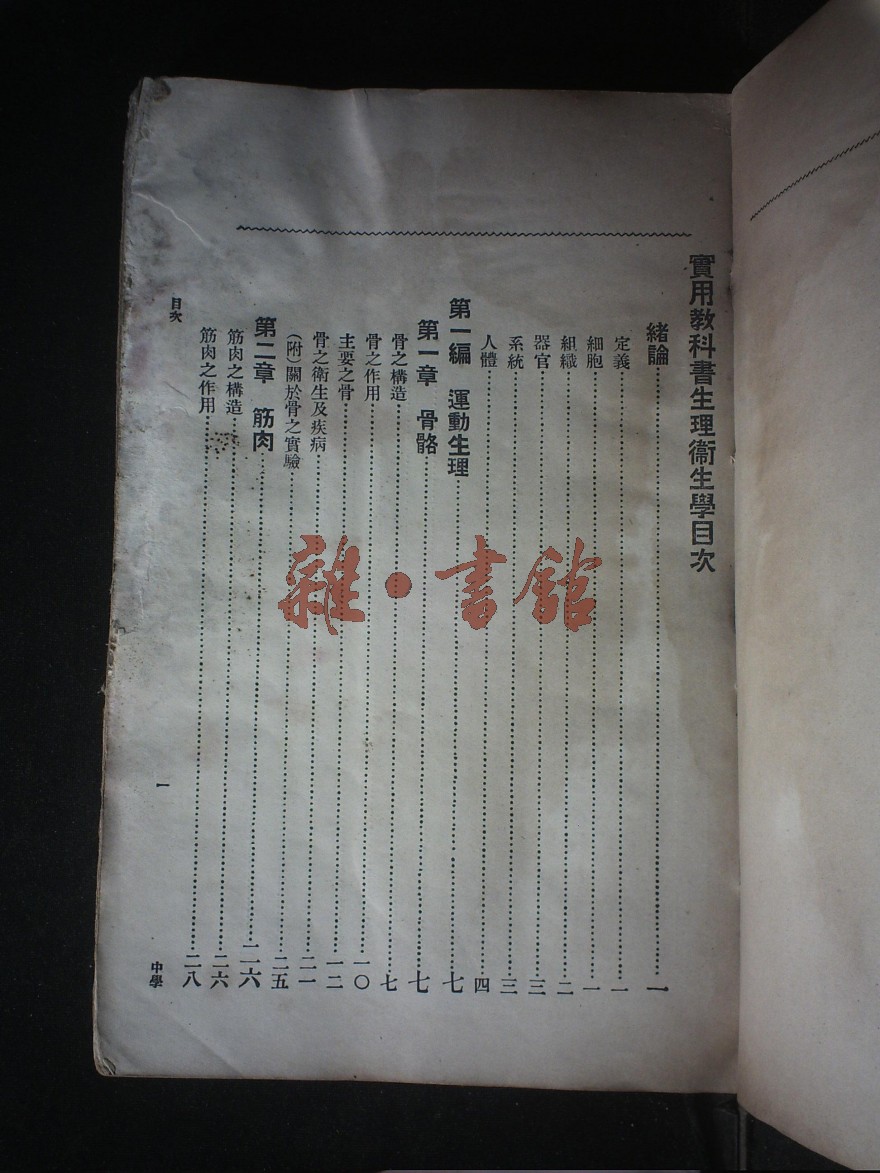 實用教科書生理衞生學目次
緒論……一
定義……一
細胞……一
組織……二
器官……三
系統……三
人體……四
第一編　運動生理……七
第一章　骨骼……七
骨之構造……七
骨之作用……一〇
主要之骨……一二
骨之衛生及疾病……二一
(附)關於骨之實驗……二五
第二章　筋肉……二六
筋肉之構造……二六
筋肉之作用……二八
目次
一
中學
雜·書館